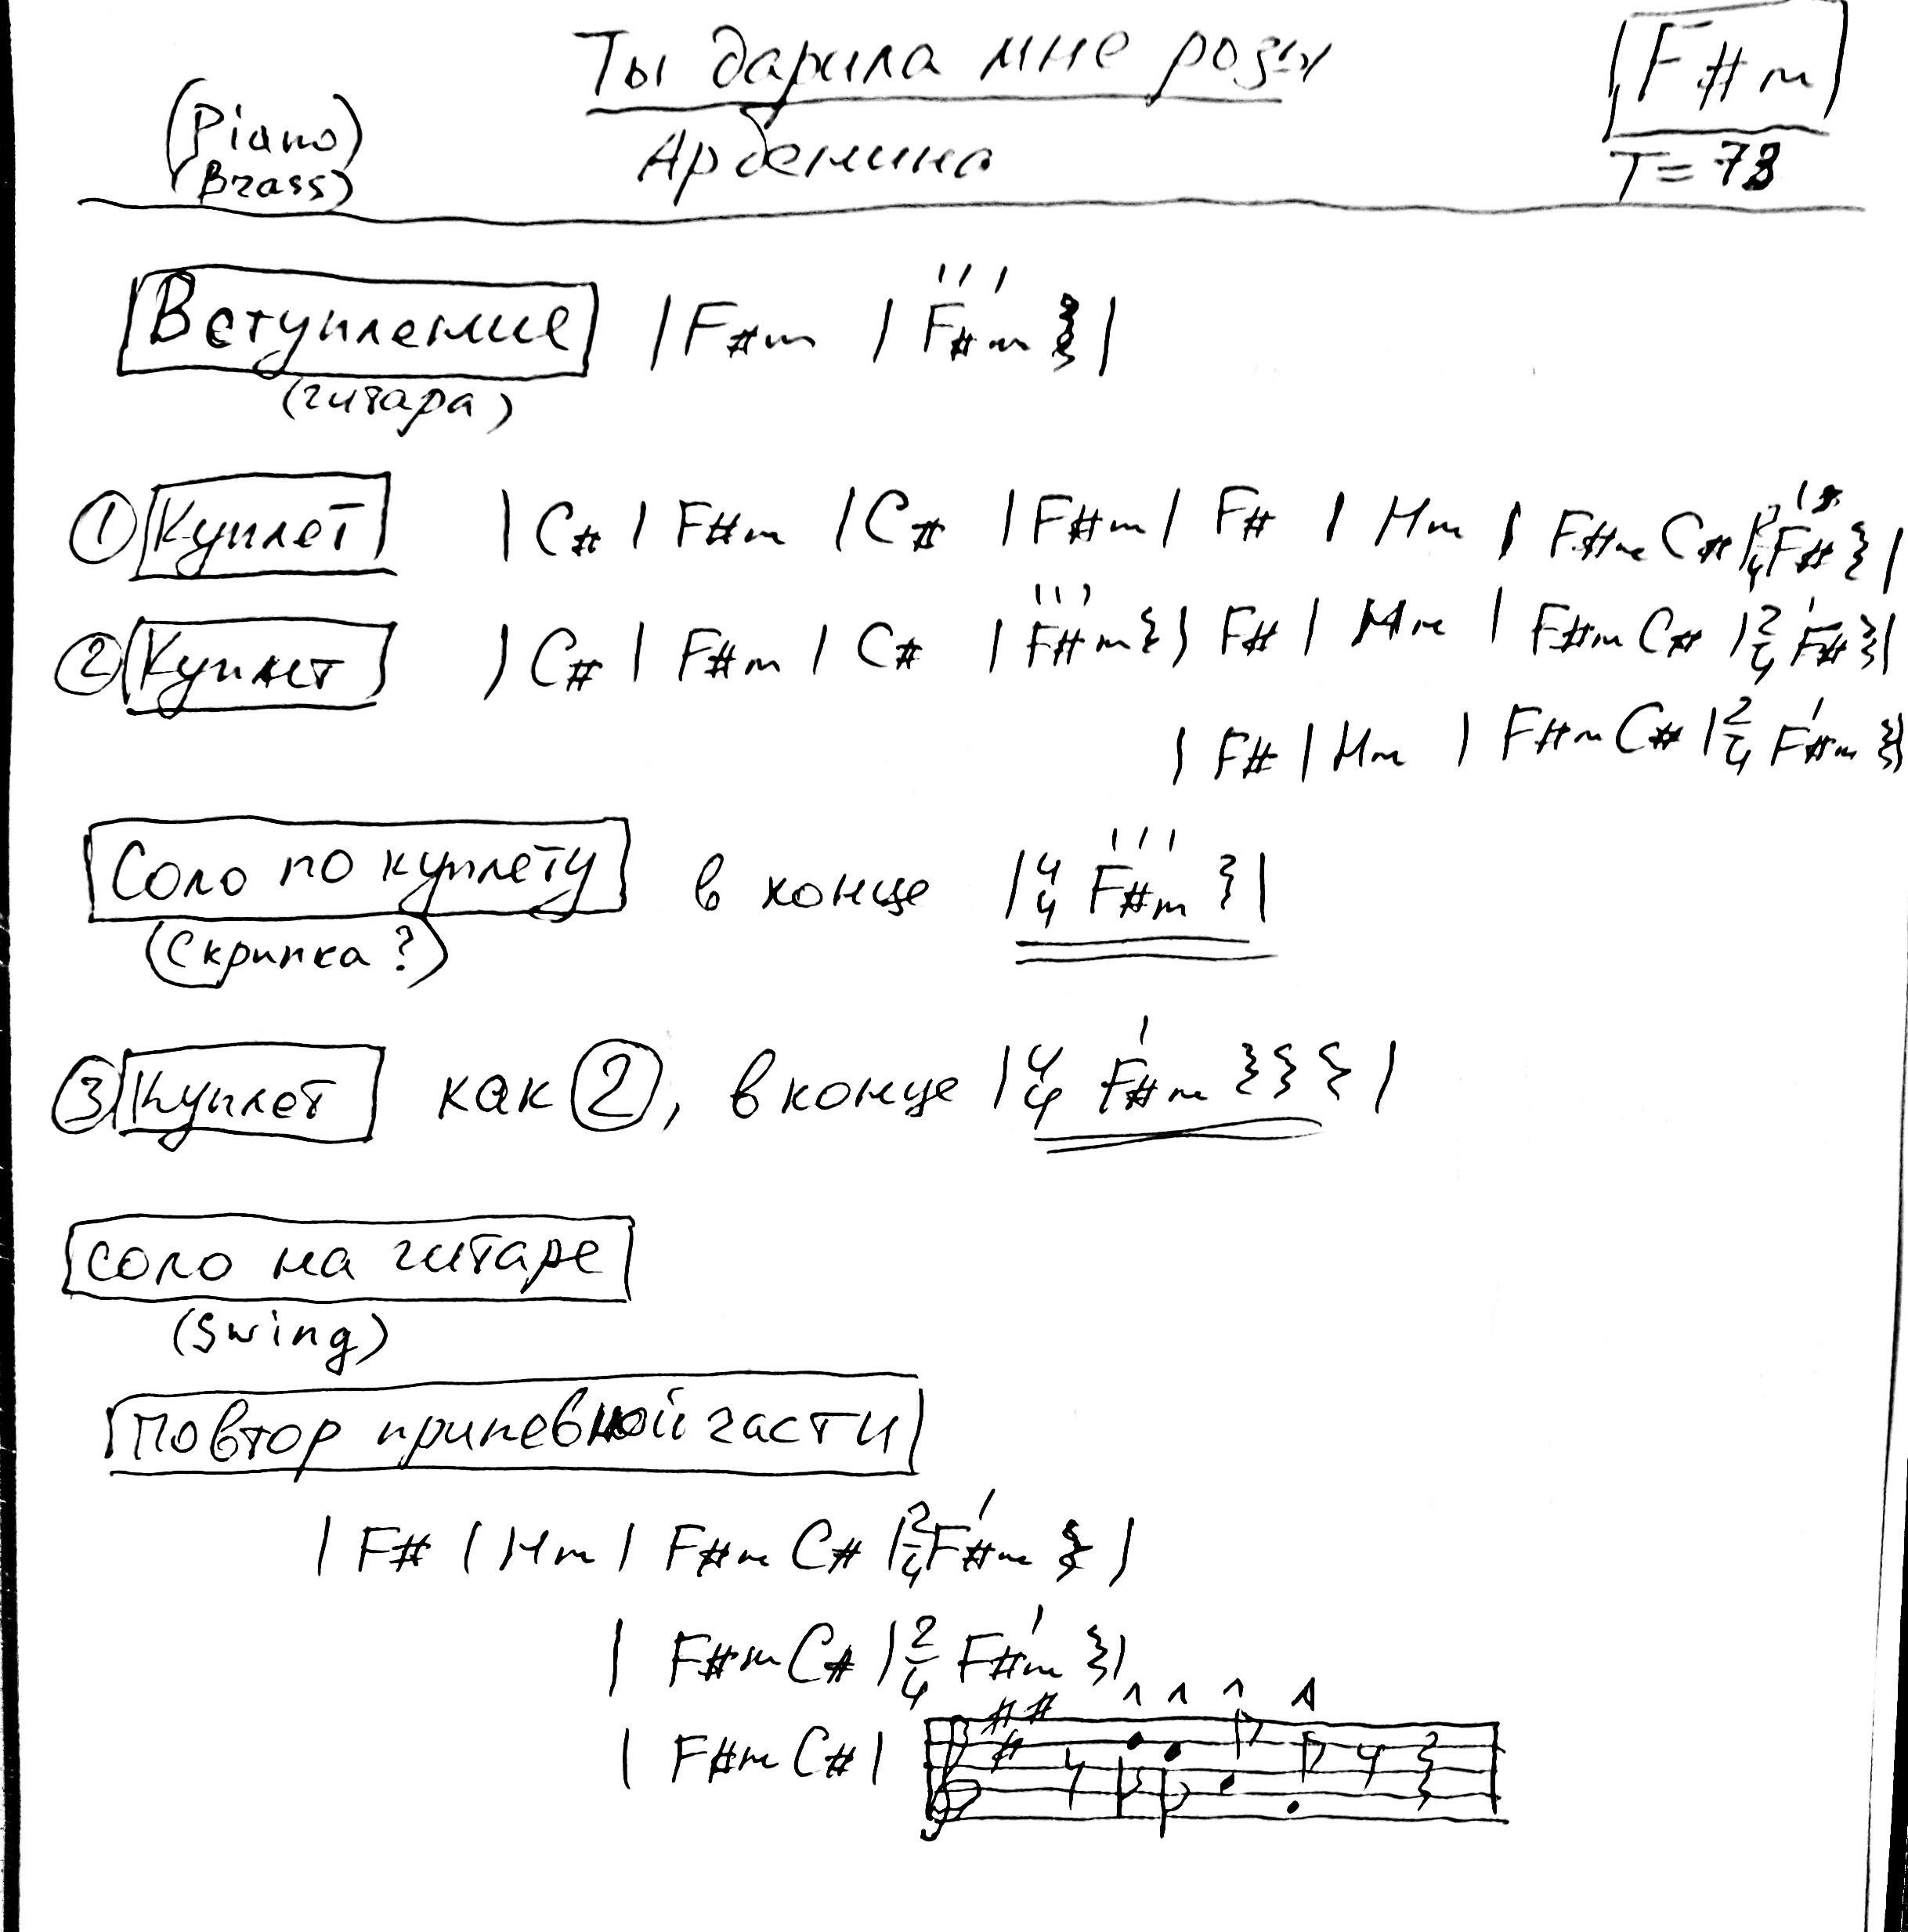 Ты дарила мне розы
F#m
(Piano)
Арбенина
T=78
(Brass)
Вступление | F#m | F#m }|
(гитара)
① Куплет | C# | F#m | C# | F#m | F# | Hm | F#m C# |2/4 F# }|
② Куплет | C# | F#m | C# | F#m }| F# | Hm | F#m C# |2/4 F# }|
| F# | Hm | F#m C# |2/4 F#m }|
Соло по куплету в конце |4/4 F#m }|
(Скрипка?)
③ Куплет как ②, в конце |4/4 F#m }}} |
соло на гитаре
(Swing)
Повтор припевной части
| F# | Hm | F#m C# |2/4 F#m } |
| F#m C# |2/4 F#m }|
| F#m C# |